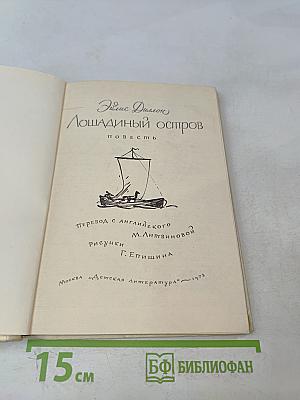 Эйлис Диллон
Лошадиный остров
ПОВЕСТЬ
Перевод с английского
М. Литвиновой
Рисунки
Г. Епишина
Москва «Детская литература» — 1973
15 см
БФ БИБЛИОФАН